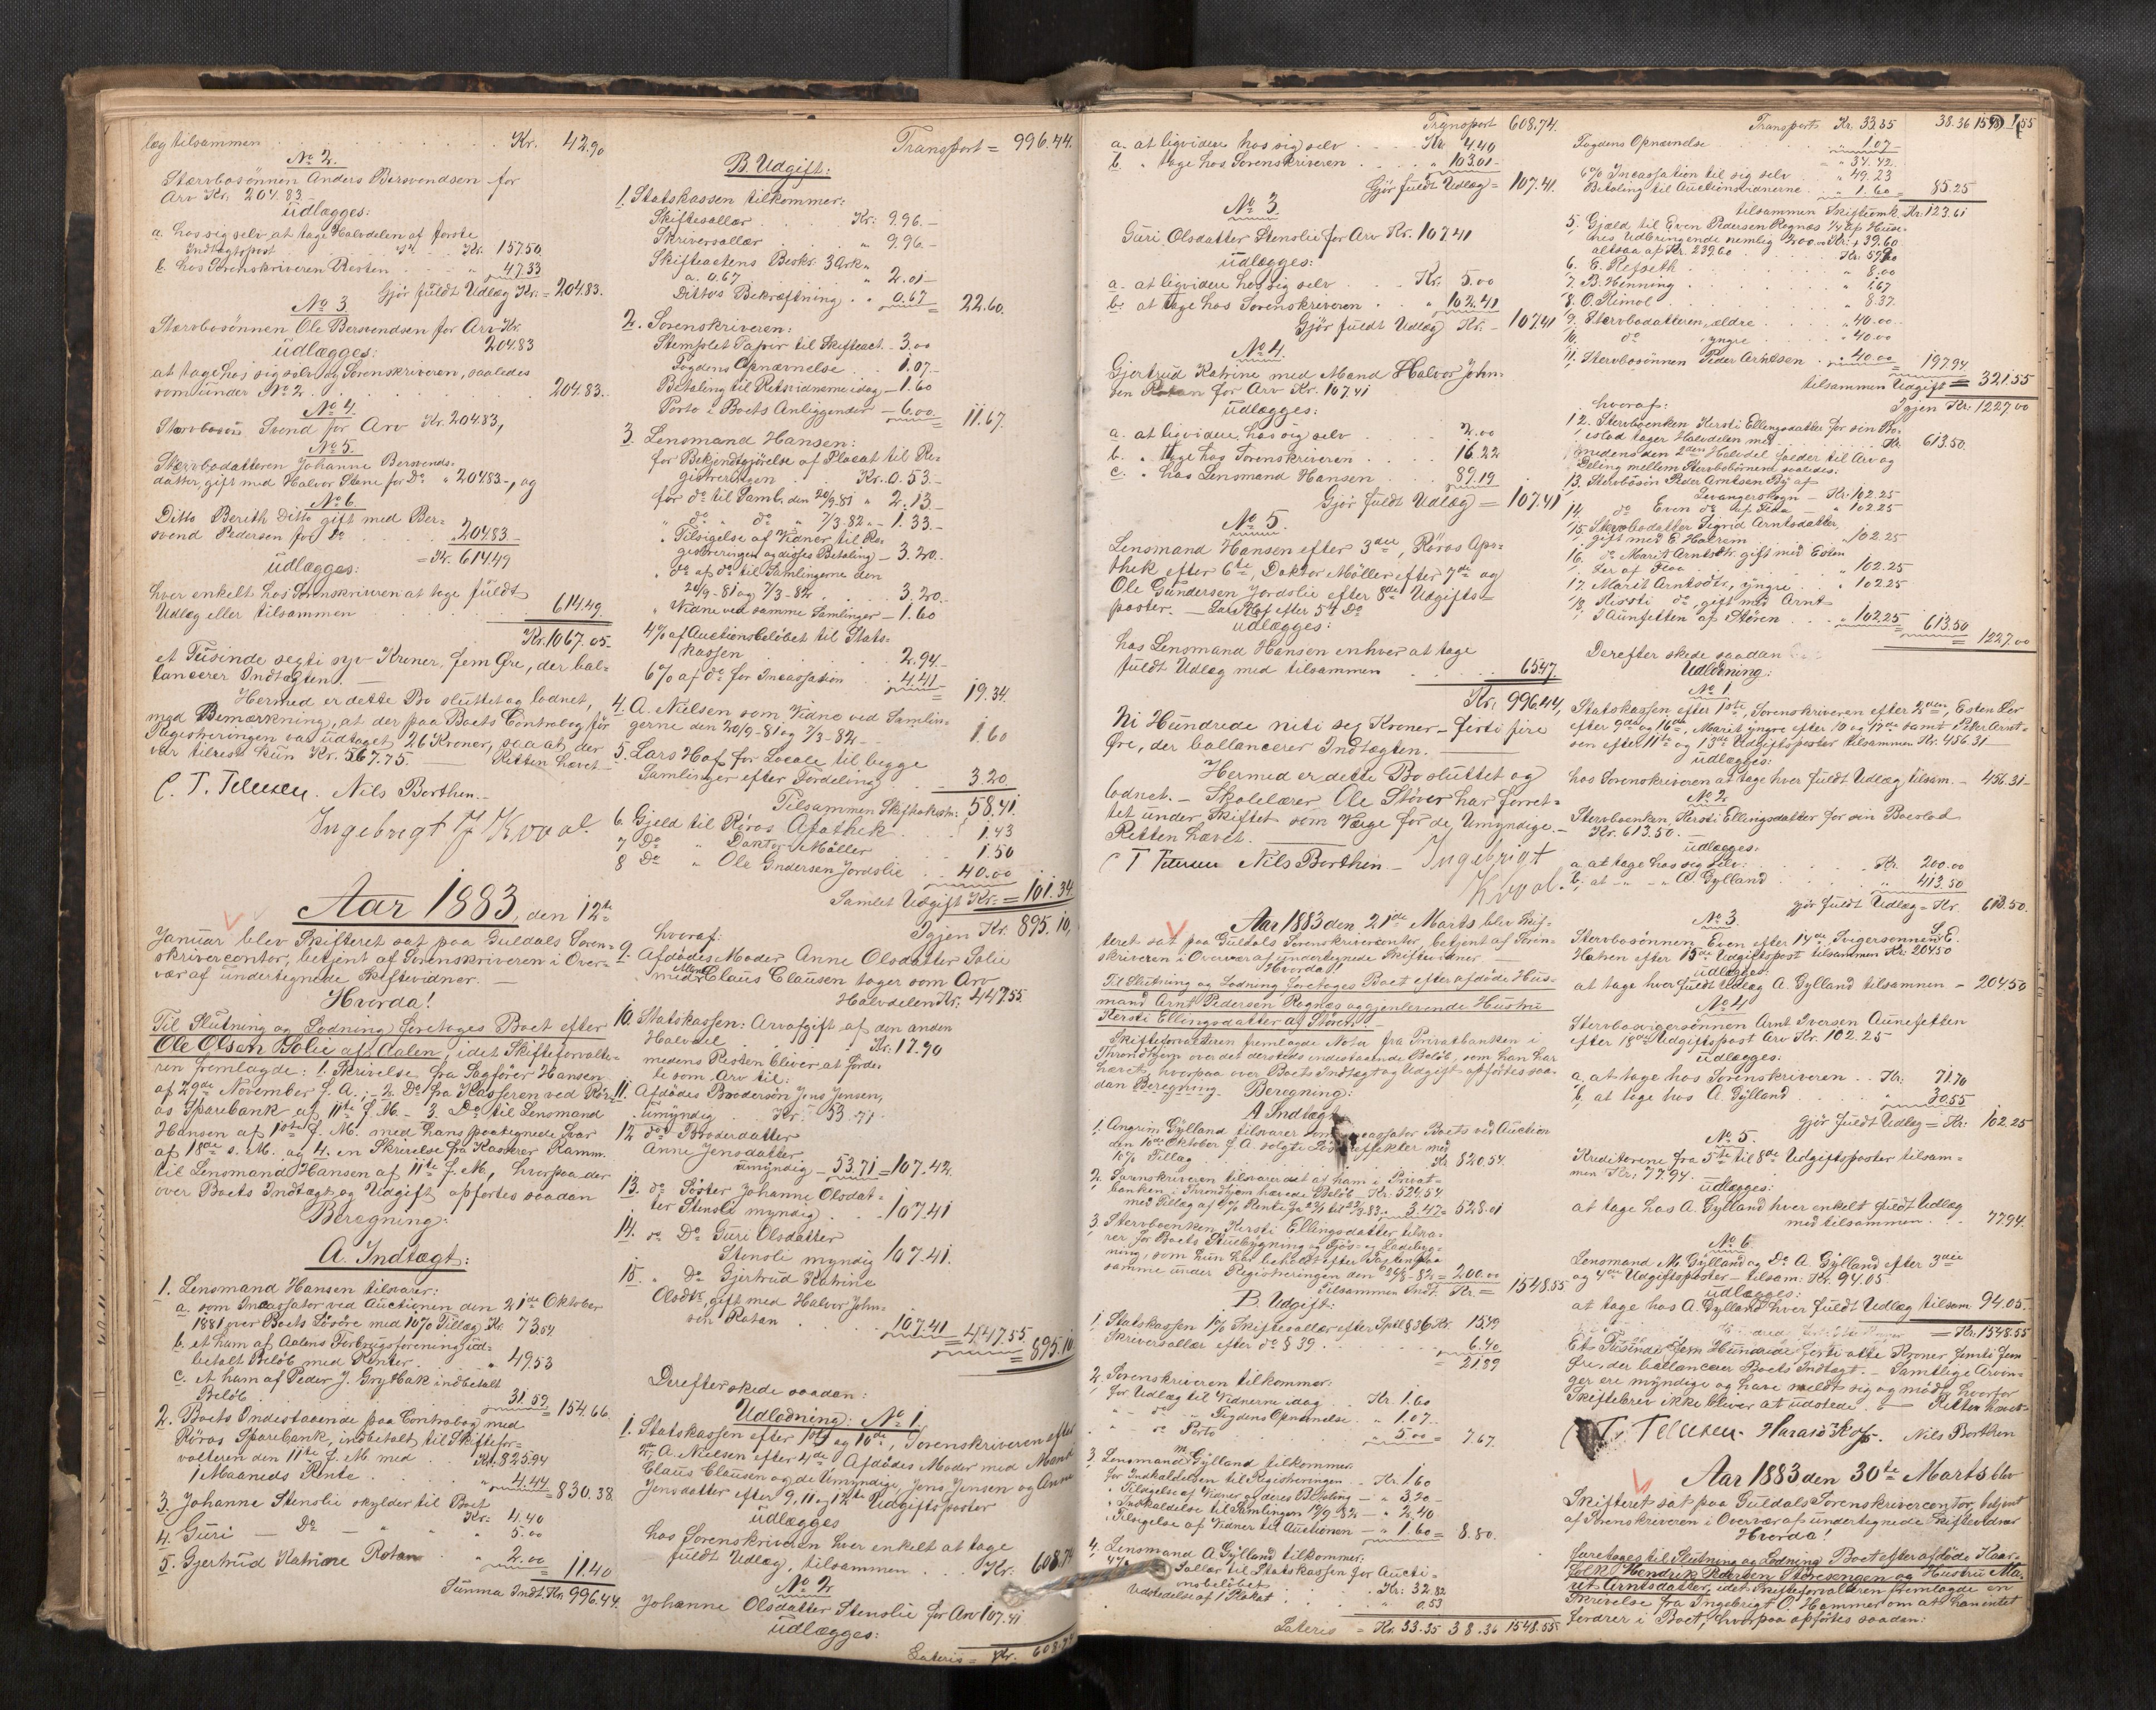 læg tilsammen . . . Kr. 42.90
No 2.
Stærvbosönnen Anders Bersvendsen for
Arv Kr. 204.83.-
üdlægges:
a. hos sig selv at tage Halvdelen af förste
Indtægtspost . . Kr. 157.50
b. hos Sorenskriveren Resten . . 47.33
Gjör füldt Udlæg Kr. = 204.83.
No 3
Stærvbosönnen Ole Bersvendsen for Arv Kr.
204.83
üdlægges:
at tage hos sig selv og Sorenskriveren, saaledes
som ünder No 2 . . . 204.83.
No 4.
Stærvbosön Svend for Arv Kr. 204.83,
No 5.
Stærvbodatteren Johanne Bersvends-
datter, gift med Halvor Stene for Do " 204.83-, og
No 6.
Ditto Berith Ditto gift med Ber-
svend Pedersen for Do . . 204.83
= Kr. 614.49
üdlægges:
hver enkelt hos Sorenskriveren at tage füldt
Udlæg eller tilsammen . . . 614.49.
Kr. 1067.05
et Tüsinde segti syv Kroner, fem Øre, der bal-
lancerer Indtægten. —
Hermed er dette Bo sluttet og lodnet,
med Bemærkning, at der paa Boets Contrabog för
Registreringen var üdtaget 26 Kroner, saa at der
var tilrest kün Kr. 567.75. — Retten hævet
C. T. Petersen. Nils Borthen.-
Ingebrigt J Kvaal.
Aar 1883, den 12te
Januar blev Skifteret sat paa Guldals Soren-
skrivercontor, betjent af Sorenskriveren i Over-
vær af undertegnede Skiftevidner. —
Hvorda!
Til Slutning og Lodning foretoges Boet efter
Ole Olsen Bolie af Aalen, idet Skifteforvalte-
ren fremlagde: 1. Skrivelse fra Sagförer Hansen
af 29de November f. A., - 2. Do fra Kasseren ved Rör-
os Sparebank af 11te f. M. - 3. Do til Lensmand
Hansen af 1ste f. M. med hans paategnede Svar
af 18de s. M. og 4. en Skrivelse fra Kasserer Ramm
til Lensmand Hansen af 11te f. M., hvorpaa der
over Boets Indtægt og Udgift opförtes saadan
Beregning:
A. Indtægt:
1. Lensmand Hansen tilsvarer:
a. som Incassator ved Auctionen den 21de Oktober
1881 over Boets Lösöre med 10% Tillæg Kr. 73.54
b. et ham af Aalens Forbrugsforening üd-
betalt Belöb med Renter . . " 49.53
c. et ham af Peder J. Grythak indbetalt
Belöb . . . 31.59 = 154.66
2. Boets Indestaaende paa Contrabog med
Röros Sparebank, indbetalt til Skiftefor-
valteren den 11te f. M. med . Kr. 825.94
1 Maaneds Rente . . . " 4.44 = 830.38.
3. Johanne Stenslie skylder til Boet
Kr: 4.40
4. Güri — Do — " " 5.00
5. Gjertrud Katrine Rotan . " 2.00 = 11.40
Summa Indt. Kr. 996.44.
Transport = 996.44.
B. Udgift:
1. Statskassen tilkommer:
Skiftesallær . . Kr: 9.96.-
Skriversallær . . " 9.96.-
Skifteactens Beskr. 3 Ark "
a. 0.67 . . . 2.01-
Ditto's Bekræftning . . 0.67 = 22.60.
2. Sorenskriveren:
Stemplet Papir til Skifteact. - 3.00
Fogdens Opnævnelse . . 1.07.-
Betaling til Retsvidnerne idag - 1.60
Porto i Boets Anliggender - 6.00 = 11.67.
3. Lensmand Hansen:
for Bekjendtgjörelse af Placat til Re-
gistreringen . . Kr. 0.53.-
for do til Saml. den 20/9-81 " 2.13.-
" do " do " 7/3-82 " - 1.33.-
" Tilsigelse af Vidner til Re-
gistreringen og disses Betaling - 3.20.-
" do af do til Samlingerne den
20/9-81 og 7/3-82 . . . 3.20.-
" Vidne ved samme Samlinger - 1.60
4% af Auctionsbelöbet til Stats-
kassen . . . 2.94.-
6% af do for Incassation . . 4.41 = 19.34.
4. A. Nielsen som Vidne ved Samlin-
gerne den 20/9-81 og 7/3-82 - 1.60
5. Lars Hof for Locale til begge
Samlinger efter Fordeling . . 3.20
Tilsammen Skifteomkostn: 58.41.
6. Gjeld til Röros Apathek . . 1.43
7 Do " Doktor Möller . . 1.50
8 Do " Ole Gundersen Jordslie . . 40.00
Samlet Udgift Kr: = 101.34.
Igjen Kr. 895.10,
hvoraf:
9. Afdödes Moder Anne Olsdatter Bolie
med Mand Claus Clausen tager som Arv
Halvdelen Kr. 447.55
10. Statskassen: Arvafgift af den anden
Halvdel . . . Kr: 17.90
medens Resten bliver at forde-
le som Arv til:
11. Afdödes Brodersön Jens Jensen,
umyndig . . Kr. 53.71
12 do Broderdatter
Anne Jensdatter
umyndig - 53.71 = 107.42.
13. do Söster Johanne Olsdat-
ter Stensli myndig . . 107.41
14. do Do Guri Olsdatter
Stensli myndig 107.41.
15. " Do Gjertrüd Katrine
Olsdtr, gift med Halvor John-
sen Rotan . . . 107.41 = 447.55
= 895.10
Derefter skede saadan:
Udlodning: No 1.
1. Statskassen efter 1ste og 10de, Sorenskriveren efter
2den, A. Nielsen efter 4de Afdödes Moder med Mand
Claus Clausen og de Umyndige, Jens Jensen og Anne
Jensdatter efter 9, 11 og 12te Udgiftsposter
üdlægges
hos Sorenskriveren hver enkelt at tage
fuldt Udlæg, tilsammen . . Kr. 608.74
No 2
Johanne Olsdatter Stenslie for Arv 107.41
üdlægges:
Lateris = Kr. 608.74
Transport 608.74.
a. at liqvidere hos sig selv . . Kr. 4.40
b. " tage hos Sorenskriveren . . " 103.01-
Gjör fuldt Udlæg = 107.41.
No 3.
Guri Olsdatter Stenslie for Arv Kr. 107.41
üdlægges:
a. at liqvidere hos sig selv . . Kr. 5.00
b. at tage hos Sorenskriveren . . " 102.41
Gjör füldt Udlæg Kr. - 107.41
No 4.
Gjertrud Katrine med Mand Halvor John-
sen Rotan for Arv Kr. 107.41
üdlægges:
a. at liqvidere hos sig selv . . 2.00
b. " tage hos Sorenskriveren . . 16.22
c. " hos Lensmand Hansen . . 89.19
Gjör füldt Udlæg = 107.41
No 5.
Lensmand Hansen efter 3die, Röros Apo-
thek efter 6te, Doktor Möller efter 7de og
Ole Gundersen Jordslie efter 8de Udgifts-
poster. — Lars Hof efter 5te Do
üdlægges:
hos Lensmand Hansen enhver at tage
füldt Udlæg med tilsammen . . . 65.47.
Kr. 996.44,
Ni Hundrede niti sex Kroner — firti fire
Øre, der ballancerer Indtægten. —
Hermed er dette Bo sluttet og
lodnet. - Skolelærer Ole Stöver har forret-
tet under Skiftet som Værge for de Umyndige. -
Retten hævet. —
C T Petersen Nils Borthen - Ingebrigt
Kvaal.
Aar 1883 den 21de Marts blev Skif-
teret sat paa Guldals Sorenskrivercontor, betjent af Soren-
skriveren i Overvær af undertegnede Skiftevidner —
Hvorda!
Til Slutning og Lodning foretoges Boet efter afdöde Hus-
mand Arnt Pedersen Rognæs og gjenlevende Hustru
Kersti Ellingsdatter af Stören. —
Skifteforvalteren fremlagde Nota fra Privatbanken i
Throndhjem over det dersteds indestaaende Belöb, som han har
hævet, hvorpaa over Boets Indtægt og Udgift opförtes saa-
dan Beregning. Beregning:
A Indtægt
1. Angrim Gylland tilsvarer som Incassator Boets ved Auction
den 10de Oktober f. A. solgte Lösöreeffekter med
10% Tillæg . . . Kr 820.54.
2. Sorenskriveren tilsvarer det af ham i Privat-
banken i Throndhjem hævede Belöb - Kr. 524.54
med Tillæg af 4% Rente fra 22/1 til 22/3 83 . . 3.47 = 528.01
3. Stervboenken Kersti Ellingsdatter tilsva-
rer for Boets Stuebygning og Fjös- og Ladebyg-
ning, som hun har beholdt efter Taxten paa
samme under Registreringen den 22/8-82 = 200.00
Tilsammen Indt. Kr. = 1548.55
B. Udgift:
1. Statskassen 1% Skiftesallær efter Sptl § 36 Kr. 15.49
Skriversallær efter do § 39 . . 6.40
= 21.89
2. Sorenskriveren tilkommer:
for Udlæg til Vidnerne idag . . Kr. 1.60
" do " Fogdens Opnævnelse . " 1.07
" do Porto . . . " 5.00 = 7.67.
3. Lensmand M. Gylland tilkommer:
for Indkaldelsen til Registreringen . . Kr. 1.60
" Tilsigelse af Vidner og deres Betaling - " 3.20 -
" Indkaldelse til Samlingen 12/9-82 - " 2.40
" Tilsigelse af Vidner til Auctionen - " 1.60 = 8.80.
4. Lensmand A. Gylland tilkommer:
4% Sallær til Statskassen for Aucti-
onsbelöbet . . Kr: 32.82
Udstedelse af 1 Plakat . . " 0.53
Lateris = Kr. 33.35 38.36 1548.55
Transports Kr. 33.35 38.36 1548.55
Fogdens Opnævnelse . . . 1.07
= " 34.42
6% Incassation til sig selv . " 49.23
Betaling til Auctionsvidnerne . " 1.60 = 85.25
tilsammen Skifteomk. Kr: 123.61
5. Gjæld til Even Pedersen Rognæs
altsaa af Kr. 239.60
6. E. Refseth . . . " 8.00
7. B. Henning . . . " 1.67
8. O. Rimol . . . " 8.37.
9. Stervbodatteren, ældre . . " 40.00.
10. do yngre . . " 40.00
11. Stervbosönnen Peder Arntsen . " 40.00 = 197.94
tilsammen Udgift = 321.55
Igjen Kr. 1227.00
hvoraf:
12. Stervboenken Kersti Ellingsdatter for sin Bo-
eslod tager Halvdelen med . . Kr. 613.50.
medens den 2den Halvdel falder til Arv og
Deling mellem Stervbobörnene saaledes:
13. Stervbosön Peder Arntsen By af
Levangerskogn - Kr: 102.25
14. do Even do af Flaa - " 102.25
15 Stervbodatter Sigrid Arntsdatter,
gift med E. Haltrem . . " 102.25
16. do Marit Arntsdtr. gift med Esten
Ler af Flaa . . . " 102.25
17. Marit Arntsdtr, yngre . . " 102.25
18. Kersti do, gift med Arnt
Aunsetten af Stören . . " 102.25 = 613.50
= 1227.00
Derefter skede saadan
Udlodning:
No 1.
Statskassen efter 1ste, Sorenskriveren efter 2den, Esten Ler
efter 9de og 16de, Marit yngre efter 10 og 17de samt Peder Arnt-
sen efter 11te og 13de Udgiftsposter tilsammen Kr. 456.31 —
üdlægges:
hos Sorenskriveren at tage hver füldt Udlæg, tilsam. - 456.31 -
No 2.
Stervboenken Kersti Ellingsdatter for sin Boeslod
Kr. 613.50. —
üdlægges:
a. at tage hos sig selv: . . Kr. 200.00
b. at - " - " A. Gylland . . " 413.50
gjör füldt Udlæg - Kr. 613.50.
No 3.
Stervbosönnen Even efter 14de, Svigersönnen E.
Haltren efter 15de Udgiftspost tilsammen Kr. 204.50
üdlægges:
at tage hver füldt Udlæg A. Gylland tilsammen - 204.50
No 4
Stervbosvigersönnen Arnt Iversen Aunesetten
efter 18de Udgiftspost Arv Kr. 102.25
üdlægges:
a. at tage hos Sorenskriveren . . Kr: 71.70
b. at tage hos A. Gylland . . " 30.55
Gjör füldt Udlæg = Kr: 102.25
No 5.
Kreditorerne fra 5te til 8de Udgiftsposter tilsam-
men Kr: 77.94.
üdlægges:
at tage hos A. Gylland hver enkelt füldt Udlæg
med tilsammen . . 77.94.
No 6
Lensmand M. Gylland og Do A. Gylland efter 3die
og 4de Udgiftsposter - tilsam: Kr. 94.05
üdlægges:
at tage hos A. Gylland hver füldt Udlæg tilsam 94.05
= Kr. 1548.55
Et Tüsinde fem Hundrede förti otte Kroner femti fem
Øre, der ballancerer Boets Indtægt. - Samtlige Arvin-
ger ere myndige og have meldt sig og mödt, hvorfor
Skiftebrev ikke bliver at udstede. — Retten hævet-
C T. Petersen. Harald Hoff. Nils Borthen
Aar 1883 den 30te Marts blev
Skifteret sat paa Guldals Sorenskrivercontor, betjent
af Sorenskriveren i Overvær af undertegnede Skiftevidner
Hvorda!
foretoges til Slutning og Lodning Boet efter afdöde Kaar-
folk Hendrik Pedersen Storesengen og Hustru Ma-
rit Arntsdatter, idet Skifteforvalteren fremlagde en
Skrivelse fra Ingebrigt O. Hammer om at han intet
fordrer i Boet, hvorpaa opförtes saadan: